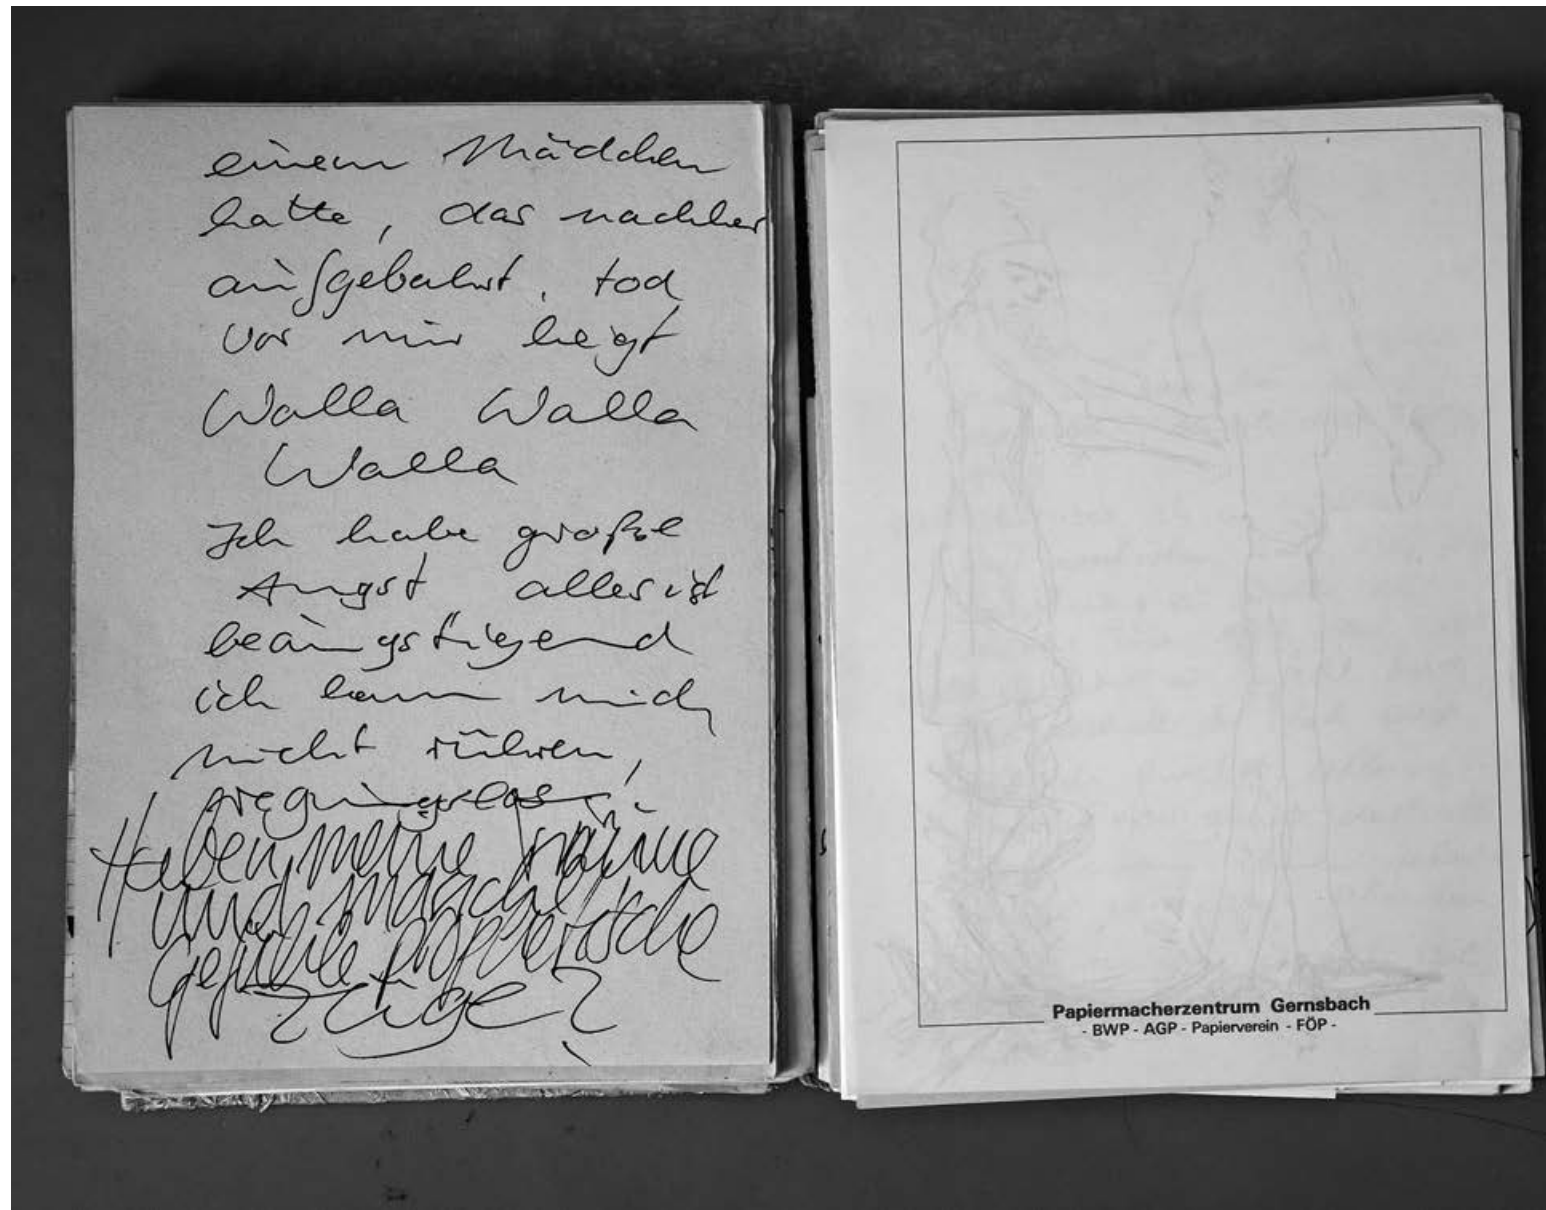 einem Mädchen
hatte, das nachher
aufgebahrt, tod
vor mir liegt
Walla Walla
Walla
Ich habe große
Angst alles ist
beängstigend
ich kann mich
nicht rühren,
regungslos
Haben meine Träume
und manche
Gefühle
Züge?
Papiermacherzentrum Gernsbach
- BWP - AGP - Papierverein - FÖP -